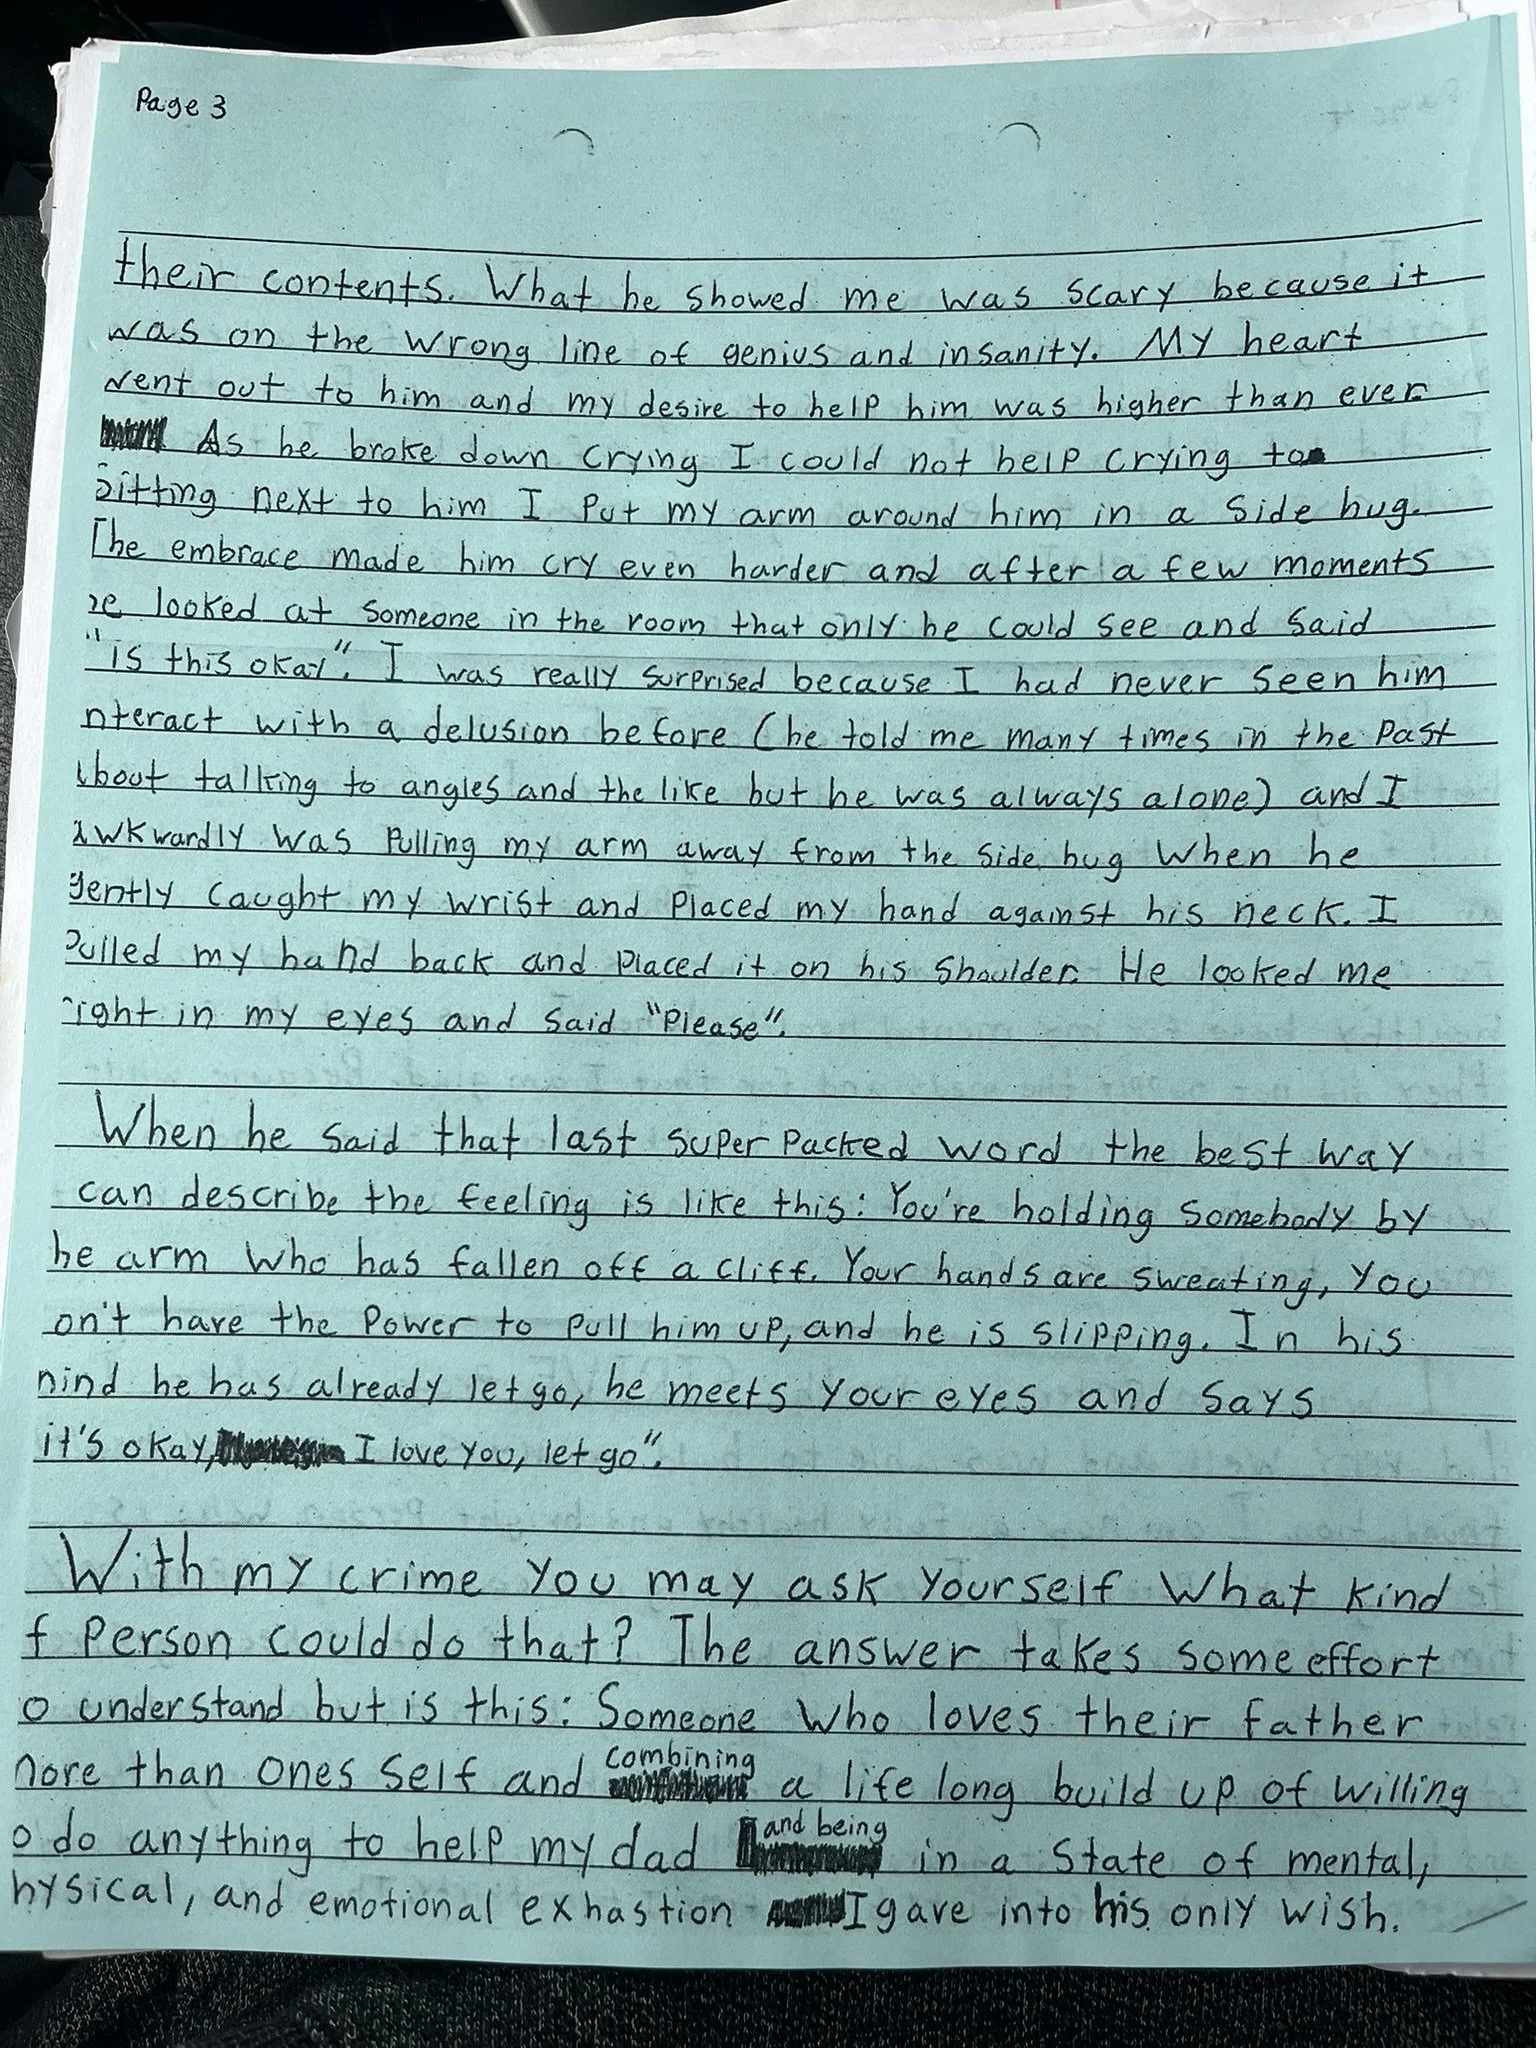 Page 3
their contents. What he showed me was scary because it
was on the wrong line of genius and insanity. My heart
went out to him and my desire to help him was higher than ever
As he broke down crying I could not help crying to
Sitting next to him I put my arm around him in a side hug.
The embrace made him cry even harder and after a few moments
he looked at someone in the room that only he could see and said
"is this okay". I was really surprised because I had never seen him
nteract with a delusion before (he told me many times in the past
about talking to angles and the like but he was always alone) and I
awkwardly was pulling my arm away from the side hug when he
gently caught my wrist and placed my hand against his neck. I
Pulled my hand back and placed it on his shoulder. He looked me
right in my eyes and said "Please".
When he said that last super packed word the best way
can describe the feeling is like this: You're holding somebody by
he arm who has fallen off a cliff. Your hands are sweating, you
on't have the power to pull him up, and he is slipping. In his
mind he has already let go, he meets your eyes and says
it's okay, I love you, let go".
With my crime you may ask yourself what kind
f person could do that? The answer takes some effort
o understand but is this: Someone who loves their father
more than ones self and combining a life long build up of willing
o do anything to help my dad and being in a state of mental,
hysical, and emotional exhastion I gave into his only wish.